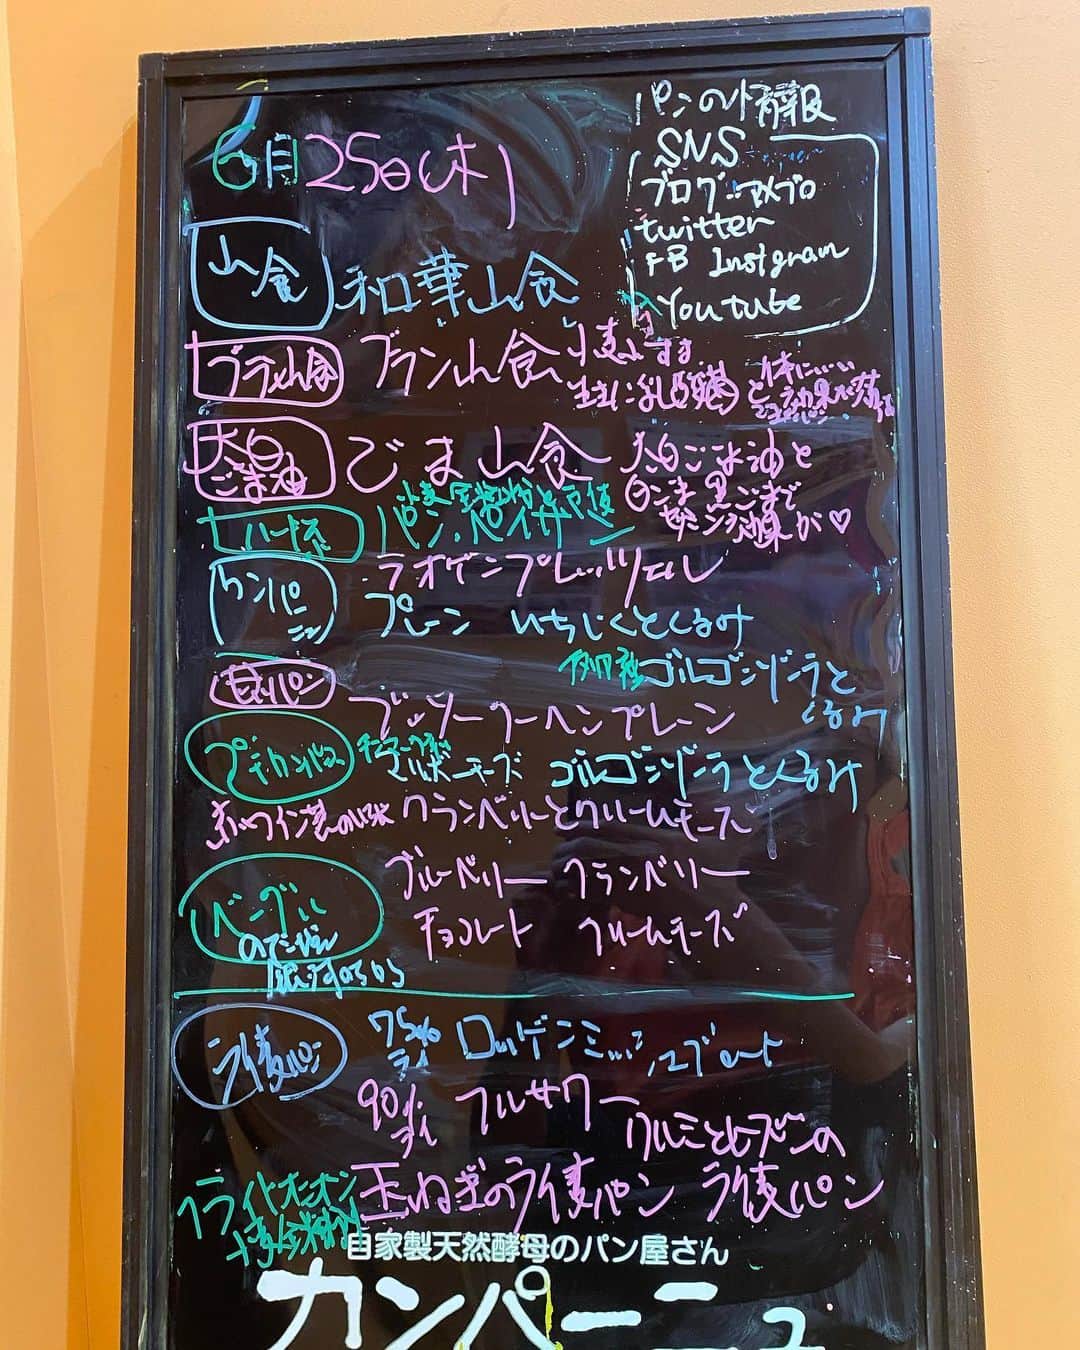 パンの情報
SNS
ブログ アメブロ
twitter
FB Instgram
Youtube
6月25日(木)
山食 和華山食
ブラン山食 ブラン山食
生きた乳酸菌と
太白ごま油 ごま山食 太白ごま油と
白ごま黒ごまで
セサミン効果が♡
ハード
パン・ペイザンヌ
カンパーニュ ラオゲンプレッツェル
プレーン いちじくとくるみ
ゴルゴンゾーラとくるみ
甘いパン
プチカンパーニュ マルボーチーズ ゴルゴンゾーラとくるみ
赤ワイン クランベリーとクリームチーズ
ベーグル ブルーベリー クランベリー
チョコレート クリームチーズ
ライ麦パン 75%ライ ロッゲンミッシュブロート
90%ライ フルサワー
クルミとレーズンの
ライ麦パン
フライドオニオン 玉ねぎのライ麦パン
自家製天然酵母のパン屋さん
カンパーニュ